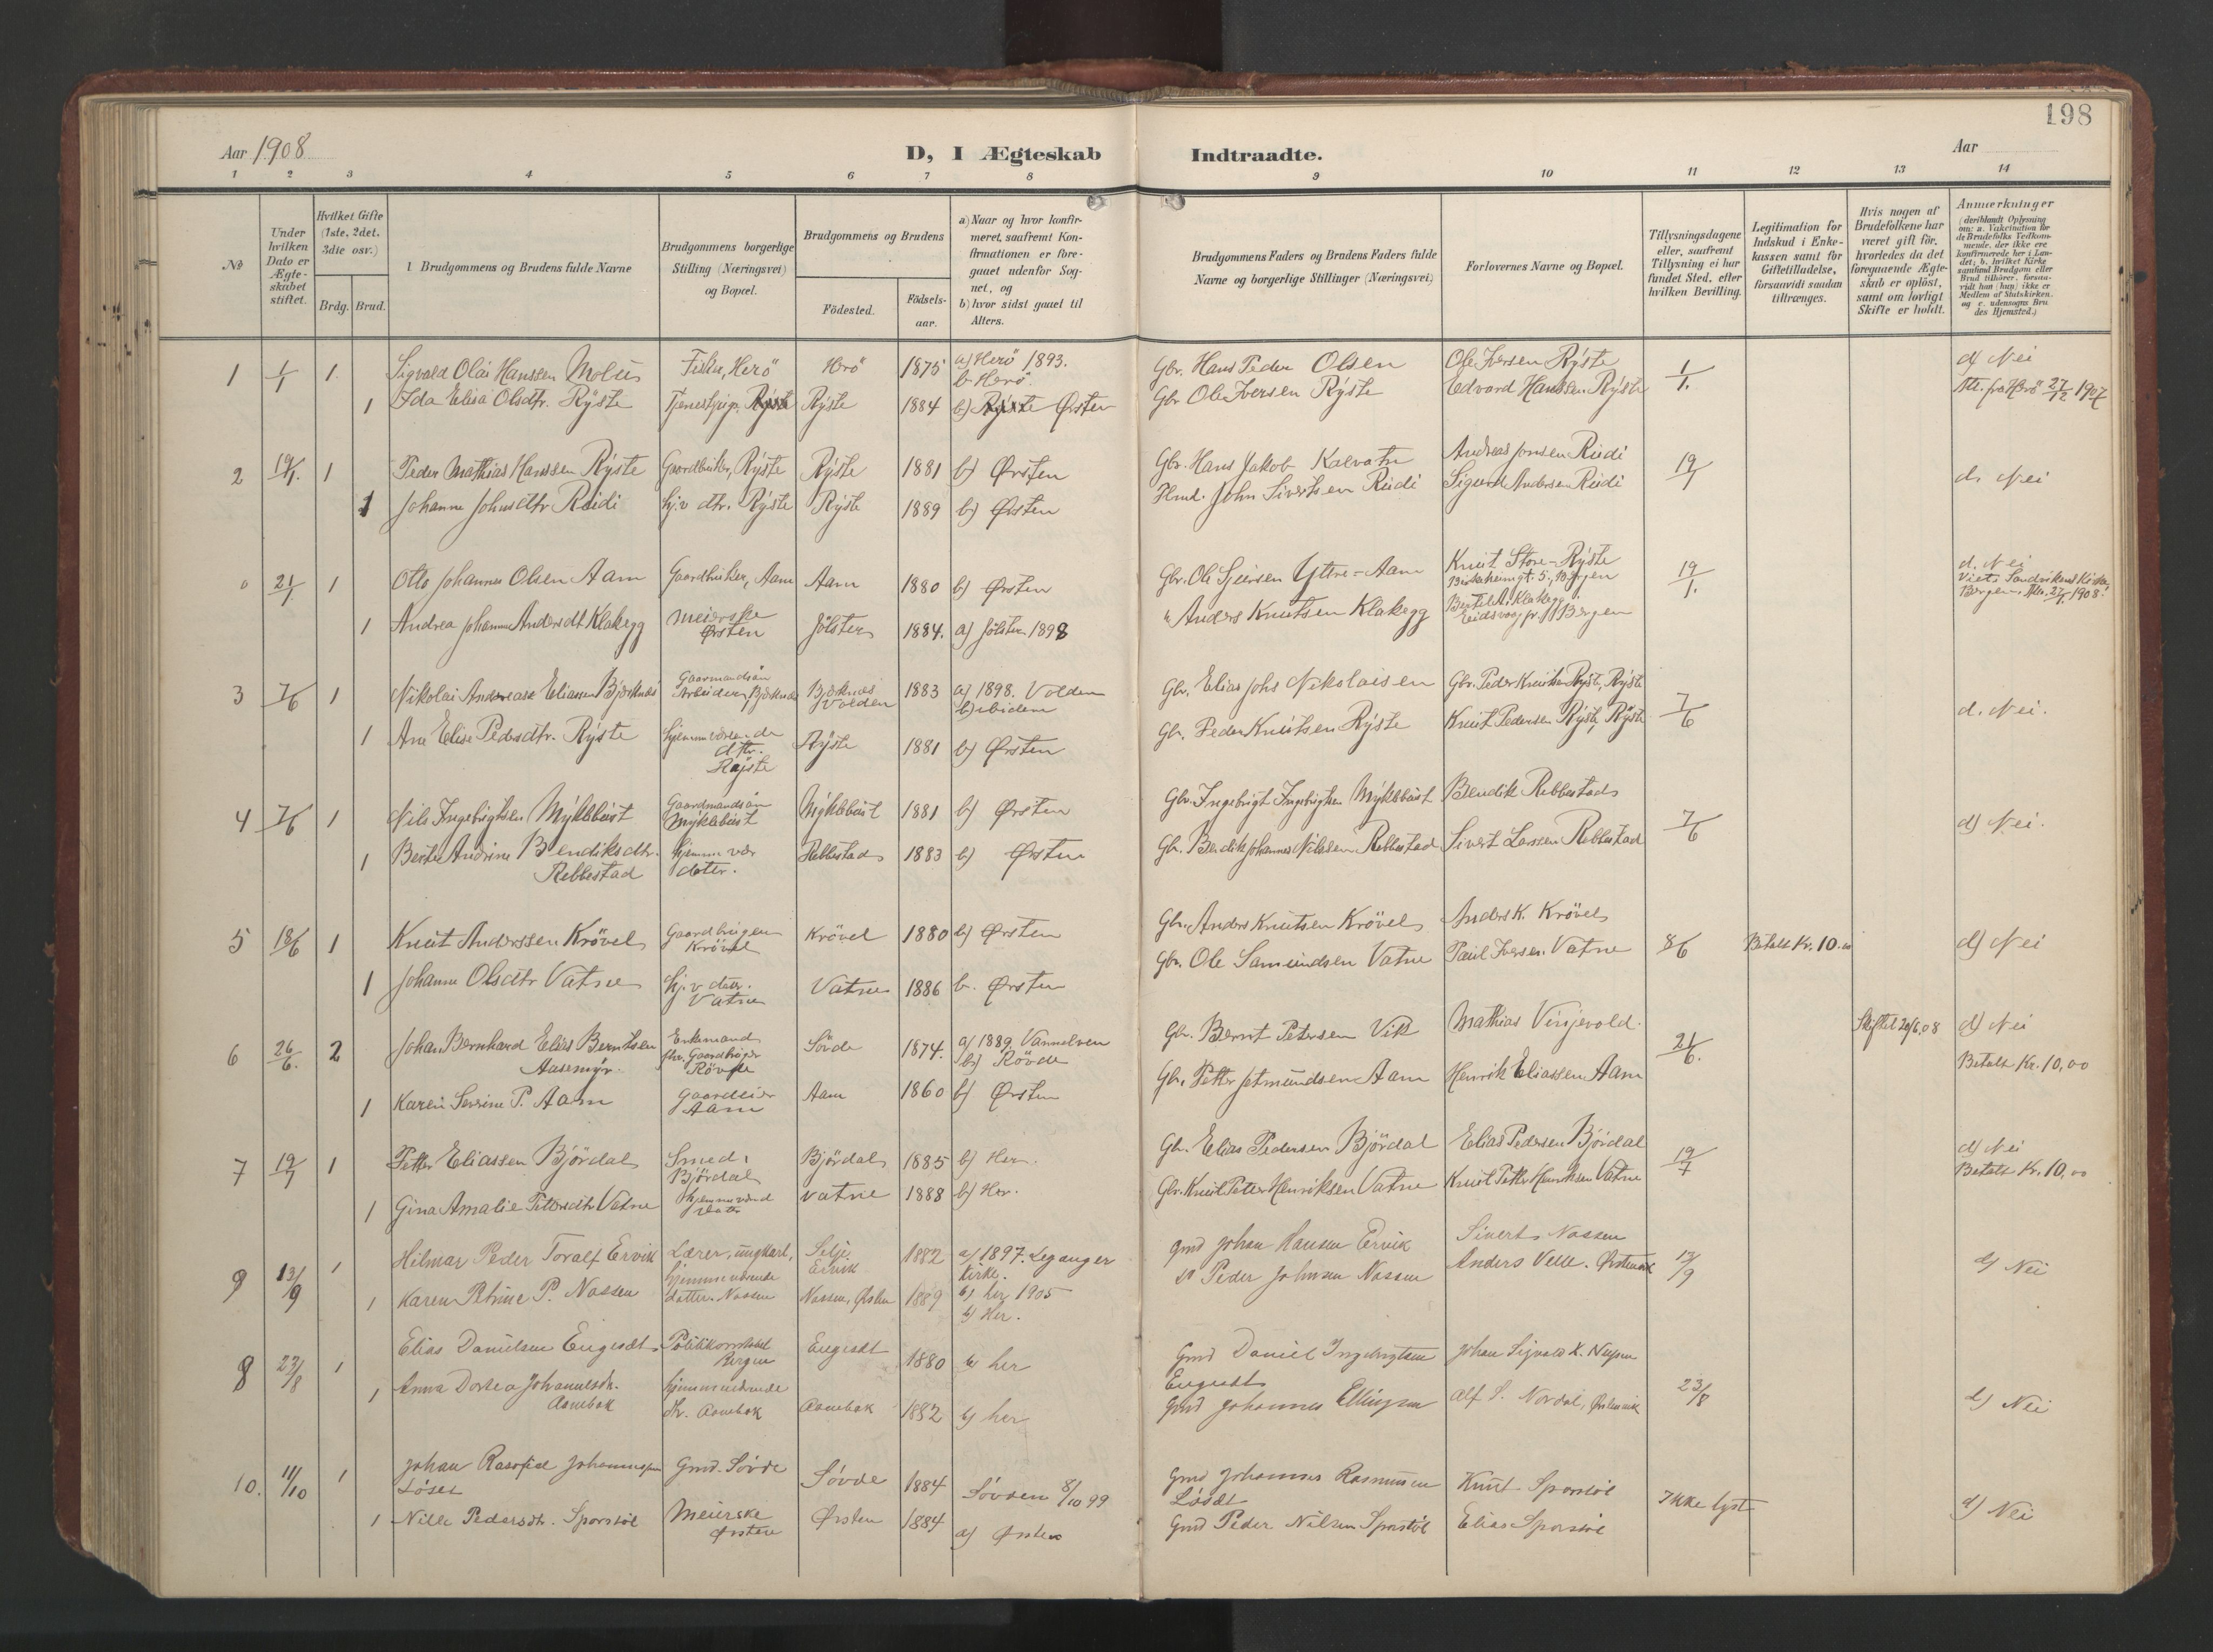 198
Aar 1908
D, I Ægteskab Indtraadte.
Aar
1 2 3 4 5 6 7 8 9 10 11 12 13 14
No
Under hvilken Dato er Ægte-skabet stiftet.
Hvilket Gifte (1ste, 2det. 3die osv.)
Brdg. Brud.
Brudgommens og Brudens fulde Navne
Brudgommens borgerlige Stilling (Næringsvei) og Bopæl.
Brudgommens og Brudens
Födested.
Födsels-aar.
a) Naar og hvor konfir-meret, saafremt Kon-firmationen er fore-gaaet udenfor Sog-net, og
b) hvor sidst gaaet til Alters.
Brudgommens Faders og Brudens Faders fulde Navne og borgerlige Stillinger (Næringsvei)
Forlovernes Navne og Bopæl.
Tillysningsdagene eller, saafremt Tillysning ei har fundet Sted, efter hvilken Bevilling.
Legitimation for Indskud i Enke-kassen samt for Giftetilladelse, forsaavidt saadan tiltrænges.
Hvis nogen af Brudefolkene har været gift för, hvorledes da det foregaaende Ægte-skab er oplöst, samt om lovligt Skifte er holdt.
Anmærkninger
(deriblandt Oplysning om: a. Vakcination for de Brudefolks Vedkom-mende, der ikke ere konfirmerede her i Lan-det; b. hvilket Kirke samfund Brudgom eller Brud tilhører, forsaa-vidt han (hun) ikke er Medlem af Statskirken, og c. udensogns Bru des Hjemsted.)
1 1/1 1 Sigvald Olai Hanssen Moltu Fisker, Herö Herö 1875 a) Herö 1893. b. Herö. Gbr. Hans Peder Olsen Ole Iversen Rÿste 1/1. d) Nei
1 Ida Elisa Olsdtr. Rÿste Rÿste 1884 b) Ørsten Gbr Ole Iversen Rÿste Edvard Hanssen Rÿste Att. fra Herö 27/12 1907
2 19/1. 1 Peder Mathias Hanssen Rÿste Gaardbruker, Rÿste Rÿste 1881 b) Ørsten Gbr. Hans Jakob Kalvatn Andreas Jonsen Rüdi 19/1 d. Nei
1 Johanne Johnsdtr Reidi hj.v dtr. Rÿste Rÿste 1889 b) Ørsten John Sivertsen Rüdi Sigurd Andersen Rüdi
21/1 1 Otto Johannes Olsen Aam Gaardbruker, Aam Aam 1880 b) Ørsten Gbr. Ole Ytre-Aam Knut Store-Rÿste 5, Bergen 19/1. d. Nei
Viet i Sandvikens Kirke, Bergen. Att. 27/1 1908.
1 Andrea Johanne Andersdt Klakegg Meierske Ørsten Jölster 1884. a) Jölster 1898 " Anders Knutsen Klakegg Bertel A. Klakegg Eidsvaag pr. Bergen
3 7/6 1 Nikolai Andreas Eliassen Bjørknes Gaarmandsøn Arbeider, Bjørknes Bjørknes Volden 1883 a) 1898. Volden b) ibidem Gbr. Elias Johs Nikolaisen Gbr. Peder Knutsen Rÿste, Rÿste 7/6 d. Nei.
1 Ane Elise Pedersdtr. Rÿste hjemmeværende dttr. Rÿste Rÿste 1881 b) Ørsten Gbr. Peder Knutsen Rÿste Knut Pedersen Rÿste, Rÿste
4 7/6 1 Nils Ingebrigtsen Mÿklebust Gaardmandsøn Mÿklebust Mÿklebust 1881 b) Ørsten Gbr. Ingebrigt Ingebrigtsen Mÿklebust Bendik Rebbestad 7/6 d) Nei.
1 Berte Andrine Bendiksdtr. Rebbestad hjemmevær dater. Rebbestad 1883 b) Ørsten Gbr. Bendik Johannes Nilssen Rebbestad Sivert Larssen Rebbestad
5 18/6 1 Knut Anderssen Krövel Gaardbruger Krövel Krövel 1880 b) Ørsten Gbr. Anders Knutsen Krövel Anders K. Krövel 8/6 Betalt Kr. 10.00 d) Nei
1 Johanne Olsdtr Vatne hj.v dater. Vatne Vatne 1886 b. Ørsten Gbr. Ole Samundsen Vatne Paul Iversen Vatne
6 26/6. 2 Johan Bernhard Elias Berntsen Aasemÿr. Enkemand Gaardbruger Rövde Sövde 1874. a) 1889. Vannelven b) Rövde Gbr. Bernt Petersen Vik Mathias Vinjevold. 21/6. Skiftet 20/6.08 d) Nei
Betalt Kr. 10,00
1 Karen Severine P. Aam Gaardeier Aam Aam 1860 b) Ørsten Gbr. Petter Jetmundsen Aam Henrik Eliassen Aam
7 19/7 1 Petter Eliassen Björdal Smed, Björdal Björdal 1885 b) Her. Gbr. Elias Pedersen Björdal Elias Pedersen Björdal 19/7 d) Nei
Betalt Kr. 10,00
1 Gina Amalie Vatne hjemmevære datter Vatne 1888 b) Her. Gbr. Knut Petter Henriksen Vatne Knut Petter Henriksen Vatne
9 13/9 1 Hilmar Peder Toralf Ervik Lærer, ungkarl, Selje. Ervik 1882 a) 1897. Leganger Kirke. b) her 1905 Gmd Johan Hansen Ervik Sivert Nassen 13/9 d) Nei
1 Karen Petrine P. Nassen hjemmeværende datter. Nassen Nassen, Ørsten 1889 b) Her. Peder Johnsen Nassen Anders Velle. Ørstenvik
8 23/8 1 Elias Danielsen Engeset Politikonstabel Bergen Engeset 1880 b) her Gmd Daniel Ingebrigtsen Engeset Johan Sigvald K. 23/8 d) Nei
1 Anna Dortea Johannesdr. Aamebak hjemmeværende dtr. Aamebak Aamebak 1882 b) her Gmd Johannes Ellingsen Alf S. Nordal, Ørstenvik
10. 11/10 1 Johan Johannessen Löset Gmd. Sövde Sövde 1884 Sövden 8/10 99 Gmd Johannes Rasmussen Knut Sporstöl Ikke lyst d) Nei
1 Nille Pedersdr. Sporstöl Meierske Ørsten Ørsten 1884 a) Ørsten Gmd Peder Nilsen Sporstöl Elias Sporstöl